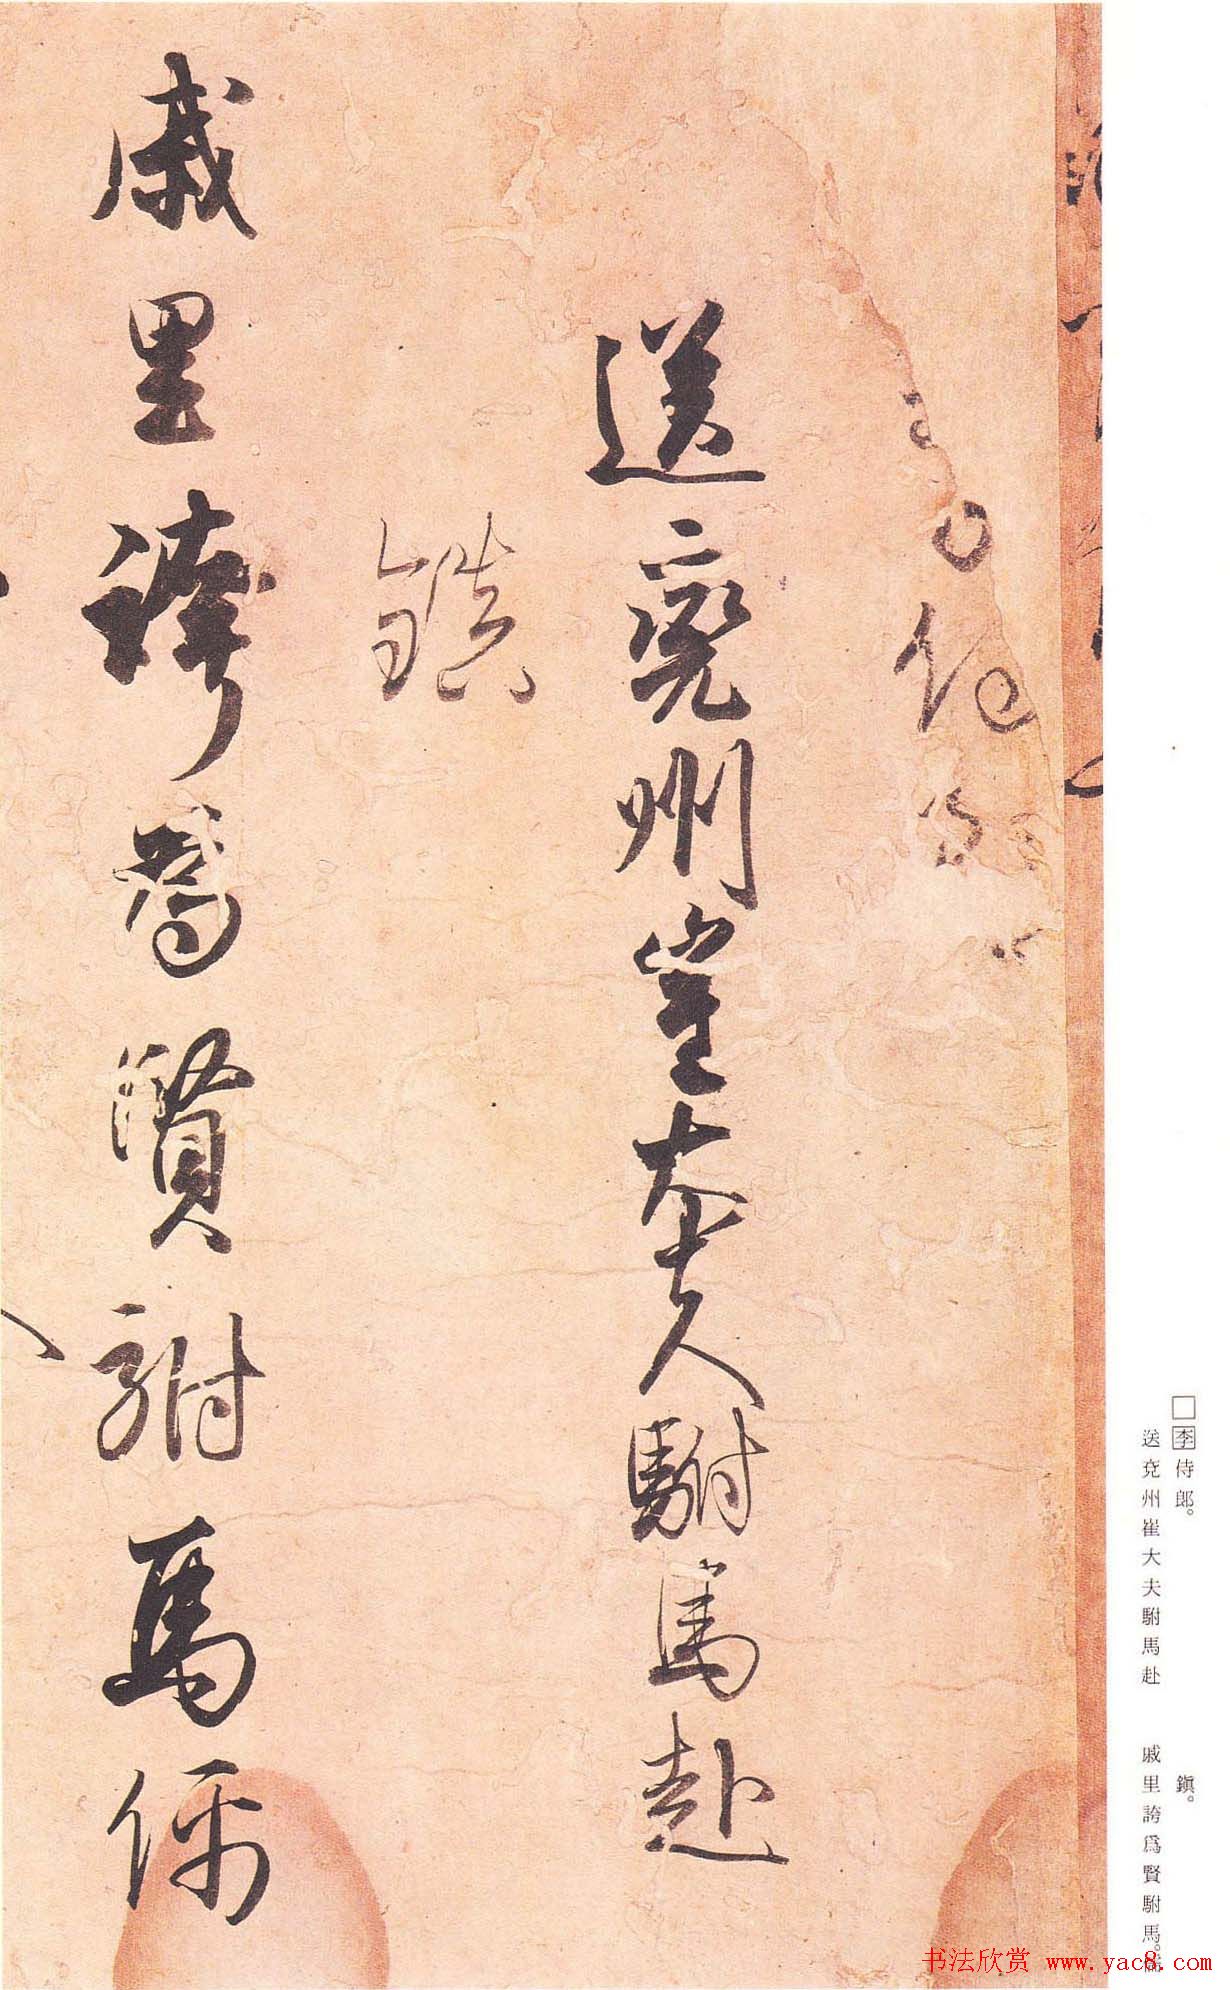 □李侍郎。
送兗州崔大夫駙馬赴
鎭。
戚里誇爲賢駙馬。儒
侍
送兗州崔大夫駙馬赴
鎭
戚里誇爲賢駙馬儒
书法欣赏 www.yac8.com